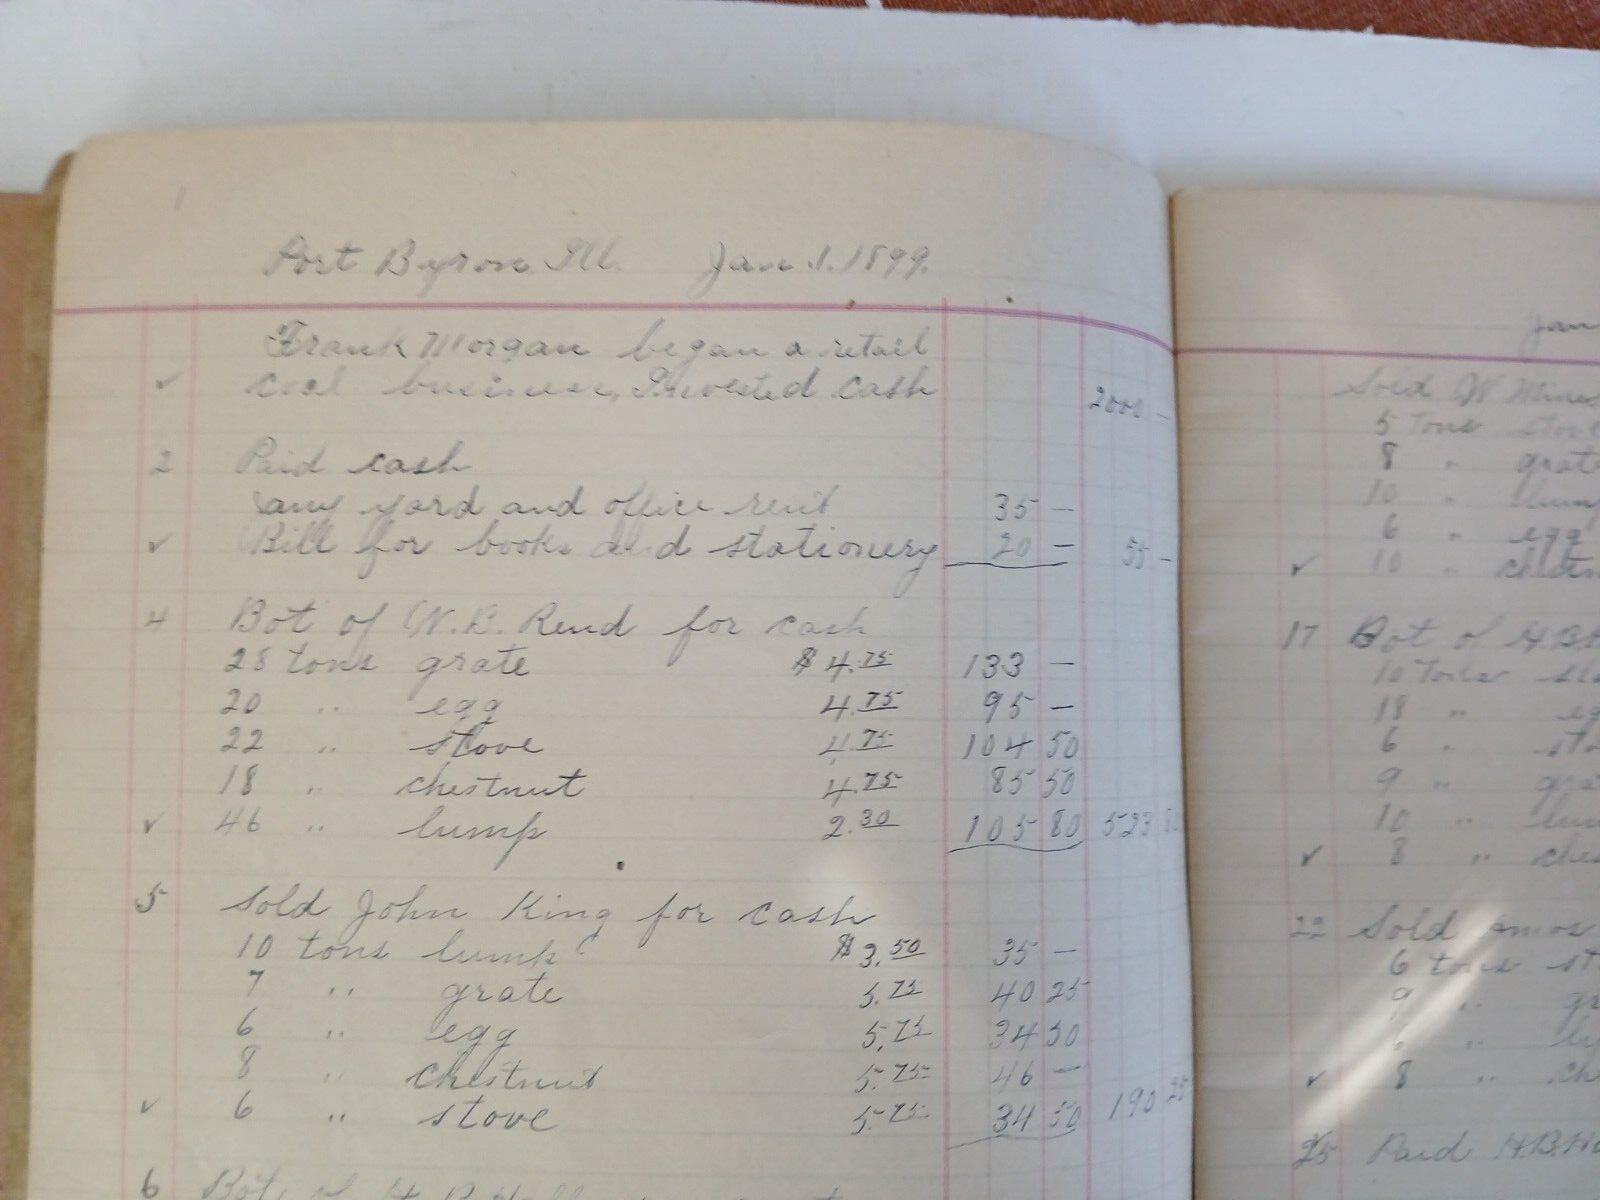 1
Port Byron, Ill. Jan. 1. 1899.
Frank Morgan began a retail
✓ coal business, Invested cash 2000 —
2 Paid cash
Jany yard and office rent 35 —
✓ Bill for books and stationery 20 — 55 —
4 Bot of W. B. Rend for cash
28 tons grate $4.75 133 —
20 " egg 4.75 95 —
22 " stove 4.75 104 50
18 " chestnut 4.75 85 50
✓ 46 " lump 2.30 105 80 523
5 Sold John King for cash
10 tons lump $3.50 35 —
7 " grate 5.75 40 25
6 " egg 5.75 34 50
8 " chestnut 5.75 46 —
✓ 6 " stove 5.75 34 50 190 25
6 Bot. of H. B.
Jan
Sold W.
5 Tons
8 " grate
10 "
6 " egg
✓ 10 "
17 Bot of H. B.
10 Tons
18 "
6 "
9 "
10 "
✓ 8 "
22 Sold Amos
6 tons
9 "
"
✓ 8 "
25 Paid H. B.